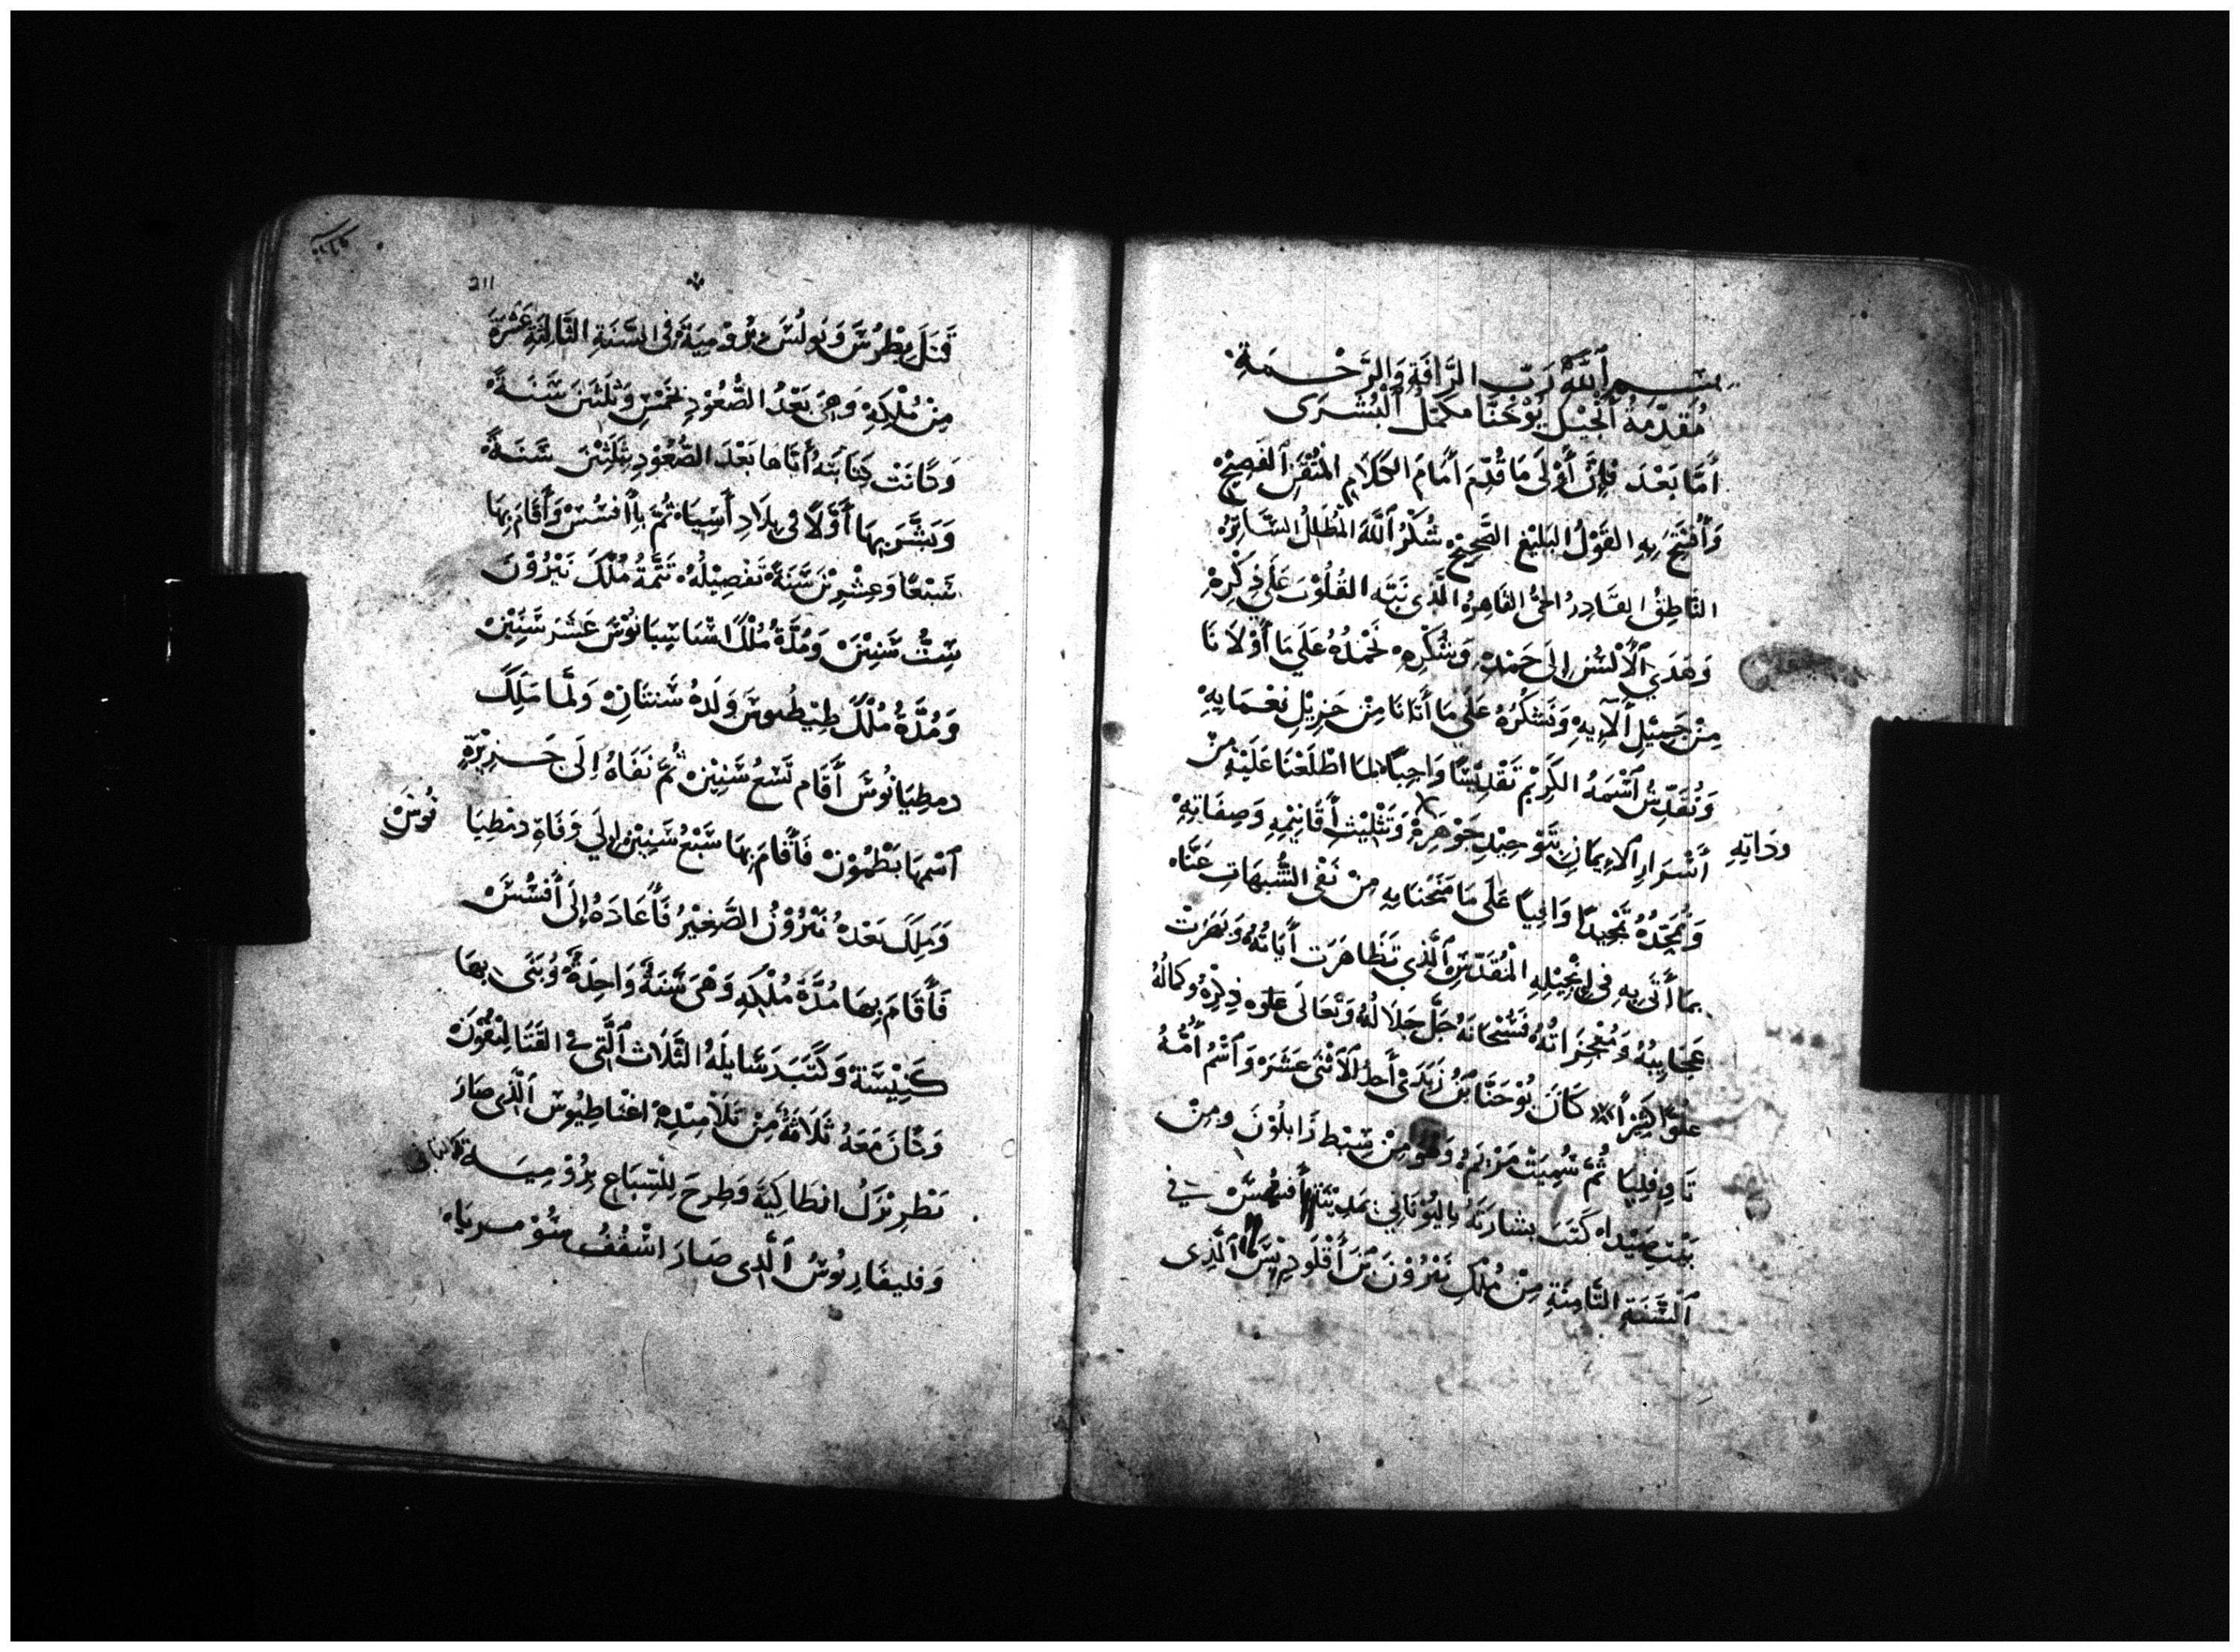 بسم ٱلله رَبّ الرَّافَةِ وَالرَّحْمَةِ
مُقَدِّمَةُ ٱنْجِيْلِ يُوْحَنَّا مكَمِّلُ ٱلْبُشْرَى
أَمَّا بَعْدَ فَإِنَّ أَوْلَى مَا قُدِّمَ أَمَامَ الكَلَامِ المُتْقَنِ ٱلفَصِيْحْ
وَأُفْتِحَ بِهِ القَوْلُ البَلِيْغِ الصَّحِيْحْ شُكْرُ ٱللَّهَ
النَّاطِقُ القَادِرُ الحَيُّ القَاهِرِ الَّذِى نَبَّه القُلُوْبَ عَلَى ذِكْرِهْ
وَهَدَي ٱلأَلْسُنِ إِلى حَمْدِهِ وَشُكْرِهِ نَحْمَدُهُ عَلَي مَا أَوْلَانَا
مِنْ جَمِيْلِ ٱلآيِهِ وَنَشْكُرُهُ عَلَي مَا أَتَانَا مِنْ جَزِيْلِ نَعْمَايِهِ
وَنُقَدِّسُ ٱسْمَهُ الكَرِيْمْ تَقْدِيْسًا وَاجِبًا لِمَا اطْلَعْنَا عَلَيْهِ مِنْ
أَسْرَارِ ٱلإِيمَانِ بِتَوْحِيْدِ جَوْهَرِهْ وَتَثْلِيْثِ أَقَانِيْمِهِ وَصِفَاتِهِ
وذاتِهِ
وَنُمَجِّدُهُ تَمْجِيْدًا وَافِيًا عَلَى مَا مَنَحْنَا بِهِ مِنْ نَفْى الشُّبهَاتِ عَنَّاه
بمَا أَتَى بِهِ فِى إِنْجِيْلِهِ المُقَدَّسِ ٱلَّذِي تَظَاهَرَت أَيَاتُهُ وَبَهَرَتْ
عَجَايِبُهُ وَمُعْجِزَاتُهُ فَسُبْحَانَهُ جَلَّ جَلَالُهُ وَتَعَالَى علوه ذِكْرِهْ وَكمَالُهُ
علوًّا كَبِيرًا كَانَ يُوْحَنَّا بْنُ زَبَدَىْ أَحدُ ٱلأثْنَى عَشَرَه وَٱسْمُ أُمُّهُ
تَاوفِلِيَا ثُمَّ سُمِيَتْ مَرْيَمُ وَهُوَ مِنْ سِبْطِ زَابلُوْنَ ومِنْ
بَيْتِ صَيْدَاه كَتَبَ بشَارَتَهُ بِاليُوْنَانِي بمَدِيْنَةِ أَفسُسَّ فِي
ٱلسَّنَةِ الثَّامِنَةِ مِنْ مُلْكِ نَيْرُوْنَ بن أَقْلَوديْسَ ٱلَّذِى
211
قَتَلَ بِطْرُسَ وَبُولُسَ بِرُوْمِيَةَ فِى السَّنَةِ الثَّالِثَةِ عَشْرَةَ
مِنْ مُلْكِهِ وَهِىَ بَعْدُ الصُّعُوْدِ بخَمْسِ وَثَلثينَ سَنَةً
وَكَانَتْ كِتَابَتهُ أَيَّاهَا بَعْدَ الصُّعُوْدِ بِثَلثِيْنَ سَّنَةً
وَبَشَّرَ بِهَا أَوَّلًا فى بِلَادِ أَسِيَاه ثُمَّ بِأَفسُسْ وَأَقَامَ بِهَا
سَبْعًا وَعِشْرِيْنَ سَنَةً تَفْصِيْلُهُ تَتِمَّةُ مُلْكَ نَيْرُوْنَ
سِتُّ سِّنِيْنَ وَمُدَّةُ مُلْكُ اسْبَاسِيَانُوْسَ عَشْرَ سِّنِيْنْ
وَمُدَّةُ مُلْكُ طِيْطُسَ وَلَدهُ سَنَتَانِ وَلمَّا مَلَكَ
دمطِيَانُوسَ أَقَام تِسْعُ سِّنِيْنْ ثُمَّ نَفَاهُ إِلَى جَزِيْرَةٍ
ٱسْمهَا بَطْمُوْنْ فَأَقَامَ بِهَا سَبْعُ سَنِيْنْ إلَي وَفَاةِ دمْطِيَا
نُوسَ
وَمَلَكَ بَعْدهُ نَيْرُوْنُ الصَّغِيْرُ فَأَعَادَهُ إِلَى أَفسُسْ
فَأَقَامَ بِهَا مُدَّةَ مُلْكِهِ وَهْىَ سَّنَةً وَاحِدَةً وَبَنَى بِهَا
كَنِيْسَةً وَكَتَبَ رَسَايلَهُ الثَّلَاث ٱلَّتِى فى القَتَالِيْقُوْنَ
وَكَانَ مَعَهُ ثَلَاثَةً مِنْ تَلَامِيْدِهْ اغْنَاطِيُوسَ ٱلَّذِى صَارَ
بَطْرِيْرَكُ انطَاكِيَةَ وَطُرِحَ لِلْسِبَاعِ بِرُوْمِيَه
وَفليقَاربُوسُ ٱلَّذِى صَارَ اسْقُفُ